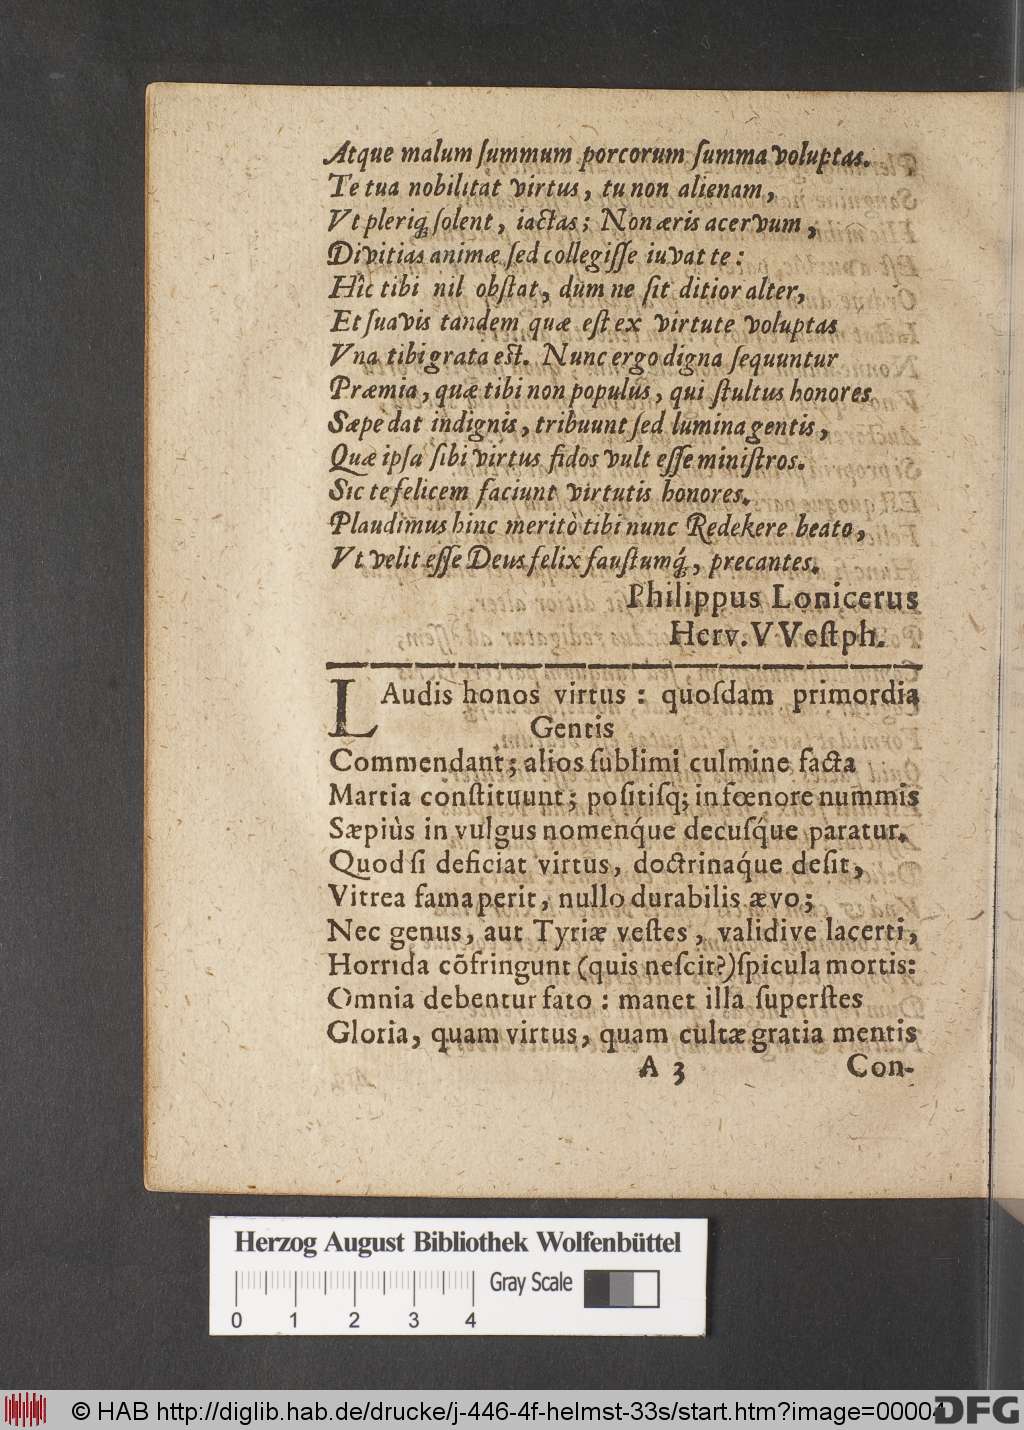 Atque malum ſummum porcorum ſumma voluptas.
Te tua nobilitat virtus, tu non alienam,
Vt pleriq́ꝫ ſolent, iactas; Non æris acervum,
Divitias animæ ſed collegiſſe iuvat te:
Hîc tibi nil obſtat, dum ne ſit ditior alter,
Et ſuavis tandem quæ eſt ex virtute voluptas
Vna tibi grata est. Nunc ergo digna ſequuntur
Præmia, quæ tibi non populus, qui ſtultus honores
Sæpe dat indignis, tribuunt ſed lumina gentis,
Quæ ipſa ſibi virtus fidos vult eſſe miniſtros.
Sic te felicem faciunt virtutis honores.
Plaudimus hinc meritò tibi nunc Redekere beato,
Vt velit eſſe Deus felix fauſtumq́ꝫ, precantes.
Philippus Lonicerus
Herv. VVeſtph.
LAudis honos virtus: quoſdam primordia
Gentis
Commendant; alios ſublimi culmine facta
Martia conſtituunt; poſitiſq; in fœnore nummis
Sæpiùs in vulgus nomenq́ue decuſq́ue paratur.
Quod ſi deficiat virtus, doctrinaq́ue deſit,
Vitrea fama perit, nullo durabilis ævo;
Nec genus, aut Tyriæ veſtes, validive lacerti,
Horrida cõfringunt (quis neſcit?) ſpicula mortis:
Omnia debentur fato: manet illa ſuperſtes
Gloria, quam virtus, quam cultæ gratia mentis
A 3 Con-
Herzog August Bibliothek Wolfenbüttel
Gray Scale
0 1 2 3 4
© HAB http://diglib.hab.de/drucke/j-446-4f-helmst-33s/start.htm?image=00004
DFG